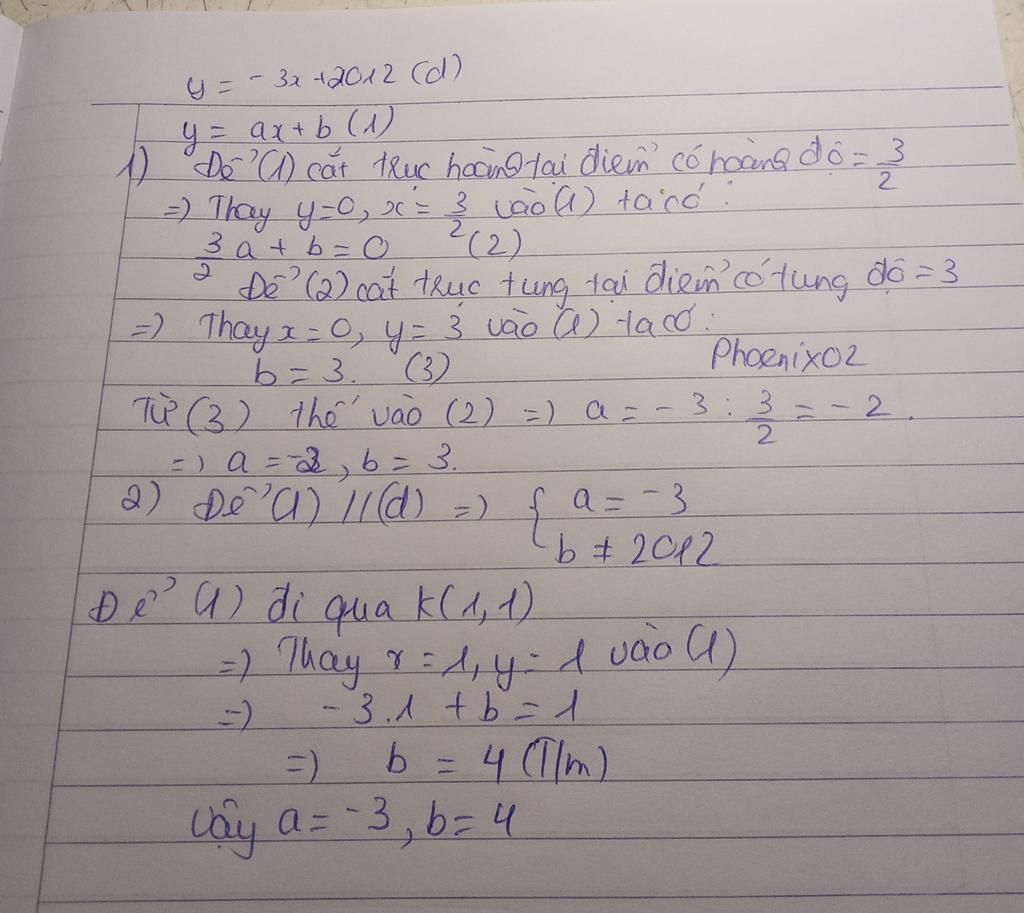 y = -3x + 2012 (d)
y = ax + b (1)
1) Để (1) cắt trục hoành tại điểm có hoành độ = 3/2
=) Thay y=0, x = 3/2 vào (1) ta có :
3/2 a + b = 0 (2)
Để (2) cắt trục tung tại điểm có tung độ = 3
=) Thay x=0, y = 3 vào (1) ta có :
Phoenix02
b = 3. (3)
Từ (3) thế vào (2) =) a = -3 : 3/2 = -2.
=) a = -2, b = 3.
2) Để (1) // (d) =) { a = -3
b ≠ 2012
Để (1) đi qua K(1,1)
=) Thay x = 1, y = 1 vào (1)
=) -3.1 + b = 1
=) b = 4 (T/m)
Vậy a = -3, b = 4